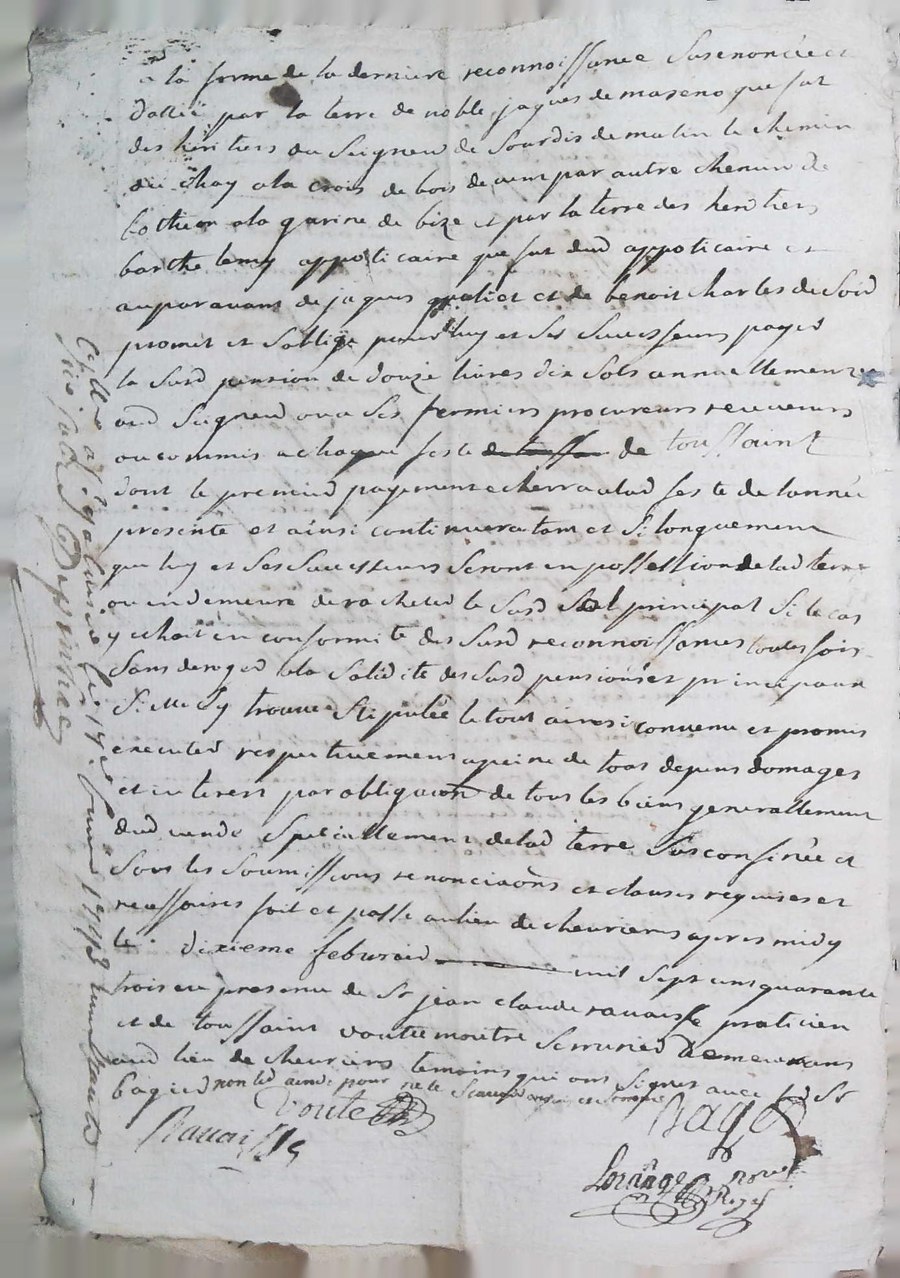 a la forme de la derniere reconnoissance susenoncée et
par la terre de noble jaques de maseno que fut
des heritiers du Seigneur de Sourdis de matin le chemin
du chay a la crois de bois de vent par autre chemin de
botheon a la garine de bize et par la terre des heritiers
barthelemy appoticaire que fut dud appoticaire et
auparavant de jaques galiet et de benoit charles de Soir
promet et soblige pour luy et ses successeurs payer
la susd pension de douze livres dix sols annuellement
aud Seigneur ou a ses fermiers procureurs receveurs
ou commis a chaque feste de toussaint
dont le premier payement echerra a lad feste de lannée
presente et ainsi continuera tant et si longuement
que luy et ses successeurs seront en possession de lad terre
ou en demeure de racheter le susd sort principal si le cas
y echoit en conformité des susd reconnoissances toutes fois
sans deroger a la solidité des susd pensions et principaux
si elle sy trouve stipulée le tout ainsi convenu et promis
executer respectivement a peine de tous depens domages
et interest par obligaon de tous les biens generallement
dud vende speciallement de lad terre sus confinée et
sous les soumissions renonciaons et clauses requises et
necessaires fait et passé au lieu de chevrieres apres midy
4. dixieme febvrier mil sept cens quarante
trois en presence de Sr jean claude ravaisse praticien
et de toussaint voute moutre serrurier demeurans
aud lieu de chevrieres temoins qui ont signes avec led Sr
bagier non led pour ne le scavoir
voute
Ravaisse
Bagier
Lorange
Collé a
1743